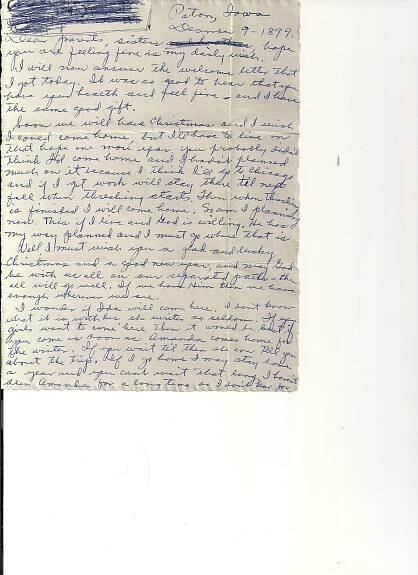 Paton, Iowa
December 9 - 1899.
Dear parents, sisters and brothers, hope
you are feeling fine is my daily wish.
I will now answer the welcome letter that
I got today. It was so good to hear that you
have your health and feel fine - and I have
the same good gift.
Soon we will have Christmas and I wish
I could come home, but I'll have to live on
that hope one more year. You probably didn't
think I'd come home and I hadn't planned
much on it because I think I'll go to Chicago
and if I get work will stay there til next
fall when threshing starts. Then when threshing
is finished I will come home. So am I planning
now. This if I live and God is willing. He has
my way planned and I must go where that is
Well I must wish you a glad and lucky
Christmas and a good new year, and may God
be with us all on our separated paths - then
all will go well. If we have Him then we have
enough wherever we are.
I wonder if Ida will come here. I don't know
what it is with her she writes so seldom. If you
girls want to come here then it would be best if
you come as soon as Amanda comes home for
the winter. If you wait til then she can tell you
about the trip. If I go home I may stay home
a year and you can't wait that long. I haven't
seen Amanda for a long time so I don't how